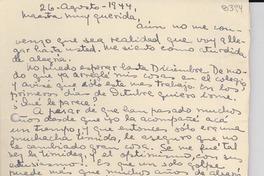 26-Agosto-1944. 8394
Maestra muy querida,
Aún no me con-
vengo que sea realidad que voy a lle-
gar hasta usted. Me siento como aturdida
de alegría.
No puedo esperar hasta Diciembre. De mo-
do que ya arreglé mis cosas en el colegio
y avisé que sólo este mes trabajo. En los
primeros días de Octubre quiero irme.
¿Qué le parece?
A pesar de que han pasado muchos
años desde que yo la acompañé acá
un tiempo, y que entonces sólo era una
muchacha tímida, le aseguro que no
he cambiado gran cosa. Se me fué tal
vez la timidez, y el optimismo, pero son
que un solo golpe
puede más que muchos años de alegría